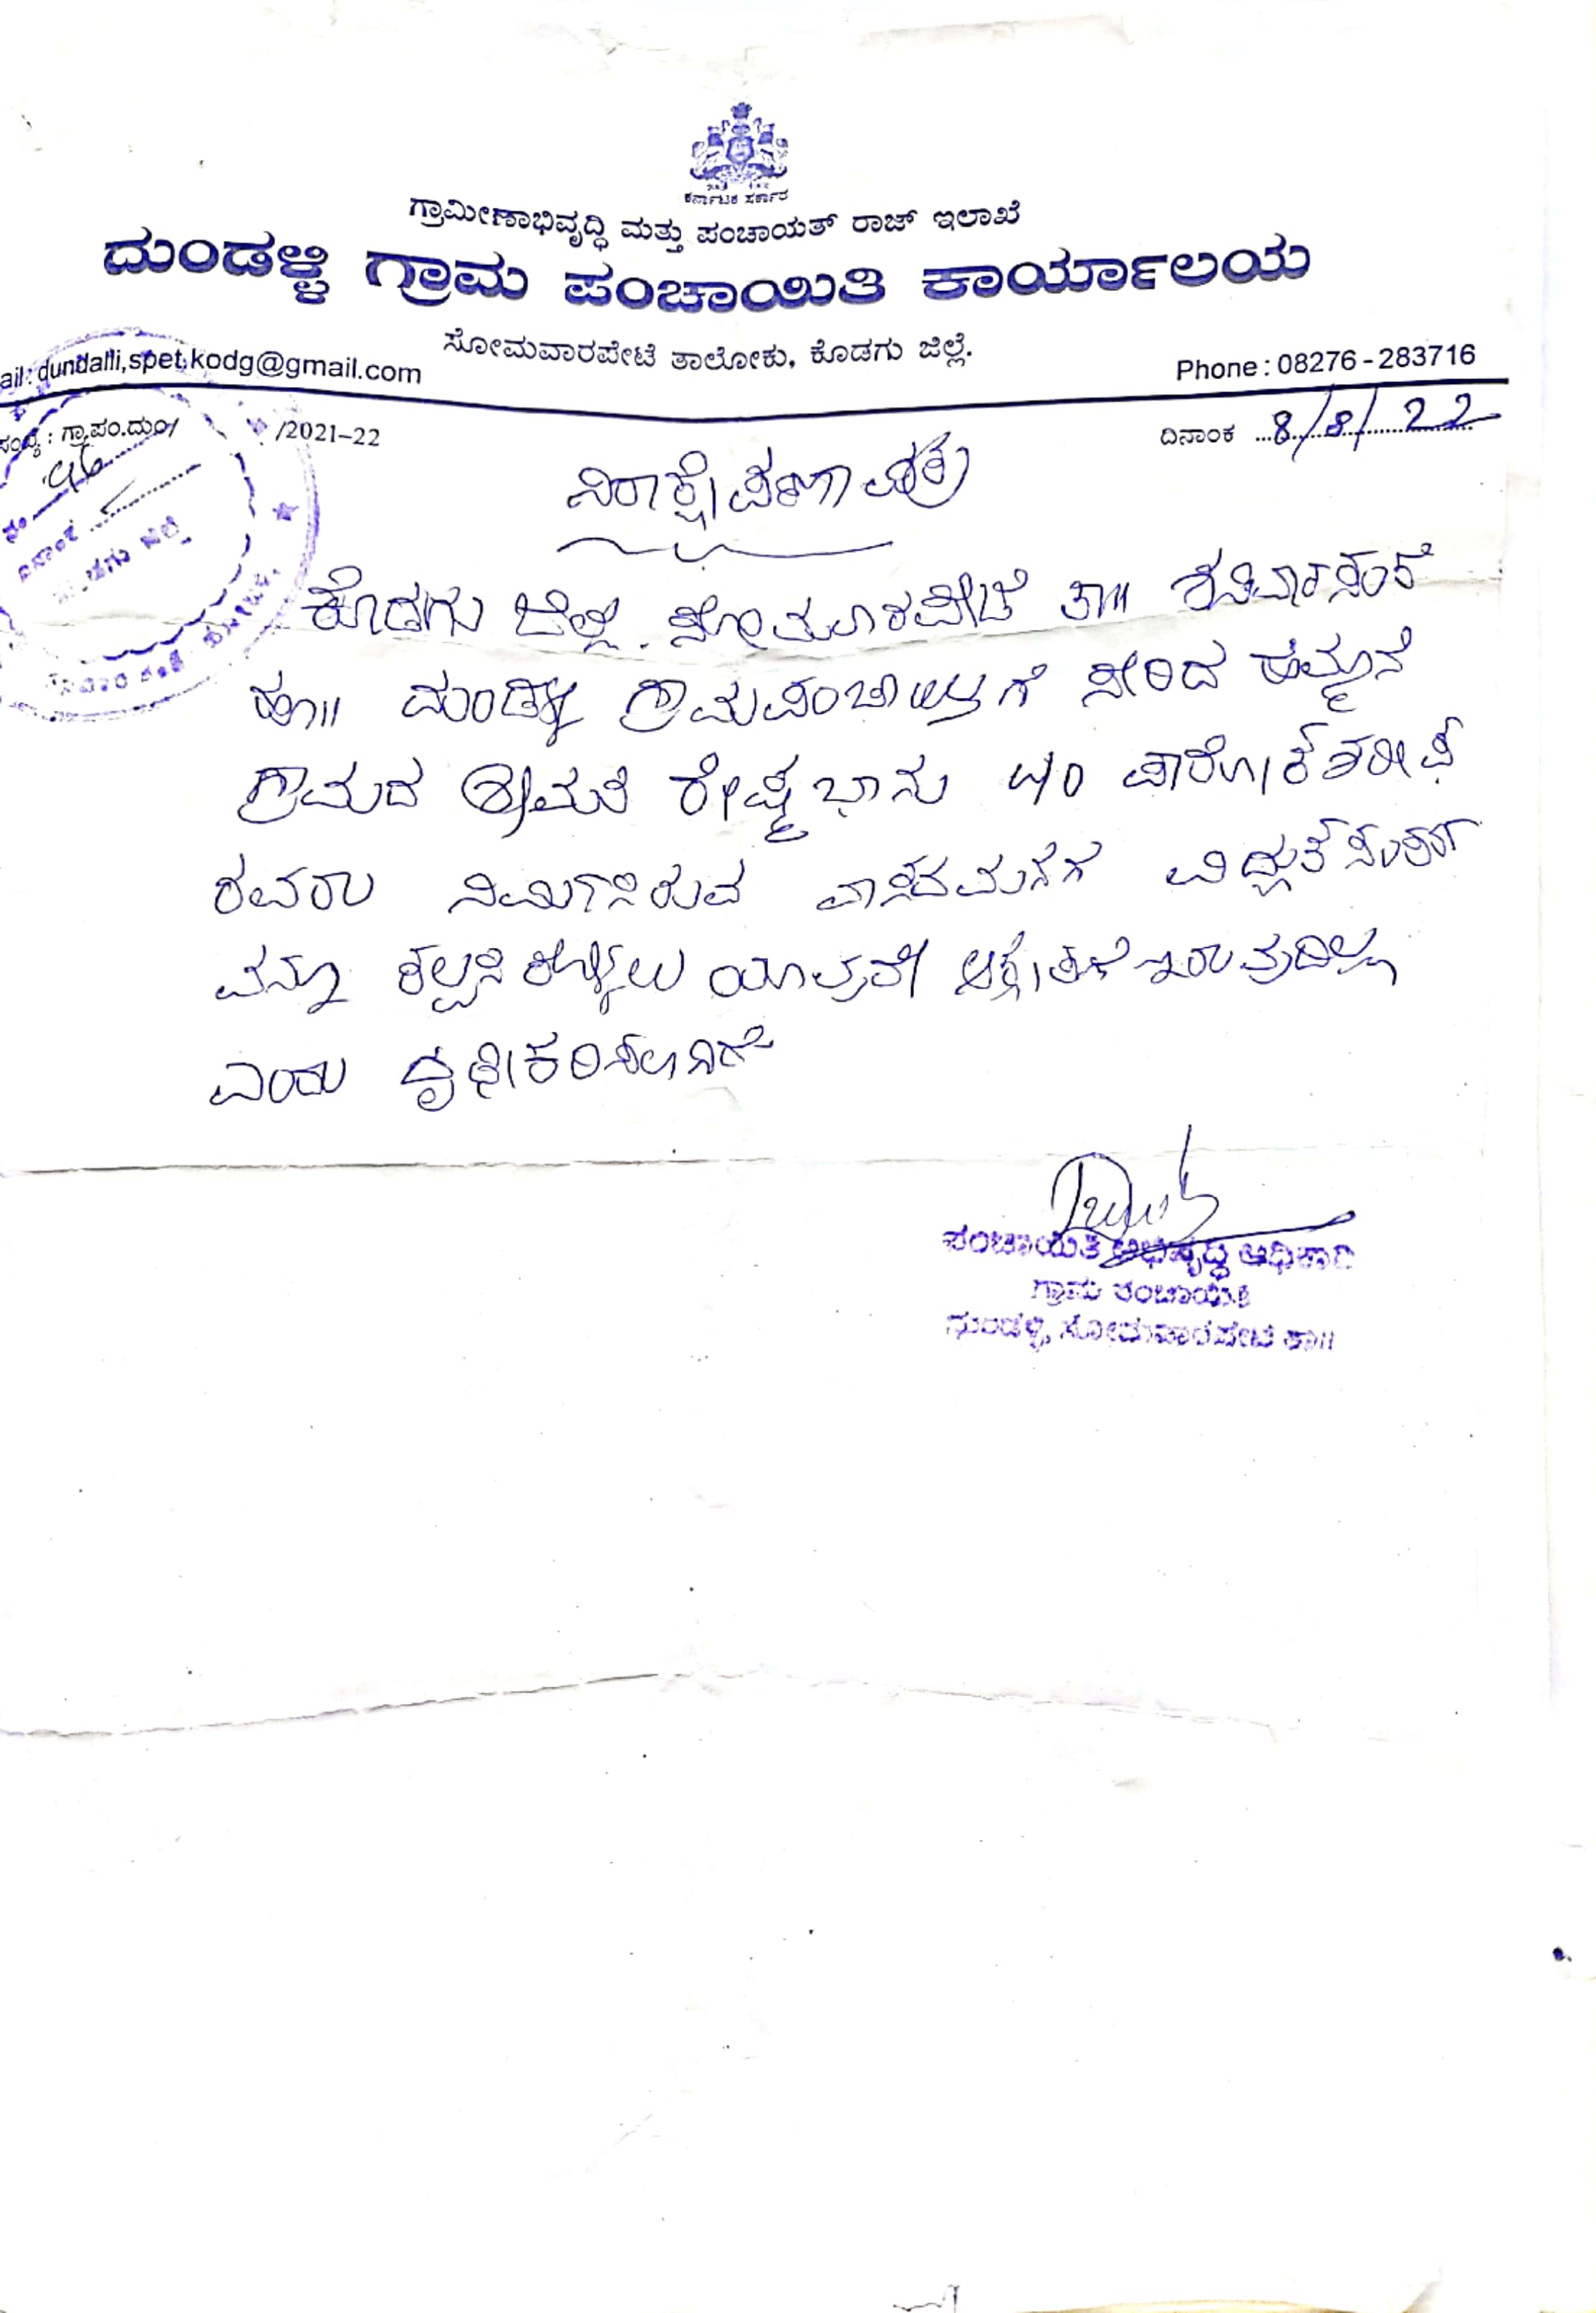 ಕರ್ನಾಟಕ ಸರ್ಕಾರ
ಗ್ರಾಮೀಣಾಭಿವೃದ್ಧಿ ಮತ್ತು ಪಂಚಾಯತ್ ರಾಜ್ ಇಲಾಖೆ
ದುಂಡಳ್ಳಿ ಗ್ರಾಮ ಪಂಚಾಯಿತಿ ಕಾರ್ಯಾಲಯ
ಸೋಮವಾರಪೇಟೆ ತಾಲೋಕು, ಕೊಡಗು ಜಿಲ್ಲೆ.
ail: dundalli,spet,kodg@gmail.com Phone : 08276-283716
ಸಂಖ್ಯೆ : ಗ್ರಾ.ಪಂ.ದುಂ/ /2021-22 ದಿನಾಂಕ 8/8/22
ನಿರಾಕ್ಷೇಪಣಾ ಪತ್ರ
ಕೊಡಗು ಜಿಲ್ಲೆ. ಸೋಮವಾರಪೇಟೆ ತಾ|| ಶನಿವಾರಸಂತೆ
ಹೋ|| ದುಂಡಳ್ಳಿ ಗ್ರಾಮಪಂಚಾಯ್ತಿಗೆ ಸೇರಿದ
ಗ್ರಾಮದ ಶ್ರೀಮತಿ ರೇಷ್ಮಬಾನು W/o
ರವರು ನಿರ್ಮಿಸಿರುವ ವಾಸದಮನೆಗೆ ವಿದ್ಯುತ್ ಸಂಪರ್ಕ
ವನ್ನು ಕಲ್ಪಿಸಿಕೊಳ್ಳಲು ಯಾವುದೇ ಆಕ್ಷೇಪಣೆ ಇರುವುದಿಲ್ಲ
ಎಂದು ದೃಢೀಕರಿಸಲಾಗಿದೆ
ಪಂಚಾಯಿತಿ ಅಭಿವೃದ್ಧಿ ಅಧಿಕಾರಿ
ಗ್ರಾಮ ಪಂಚಾಯಿತಿ
ದುಂಡಳ್ಳಿ, ಸೋಮವಾರಪೇಟೆ ತಾ||